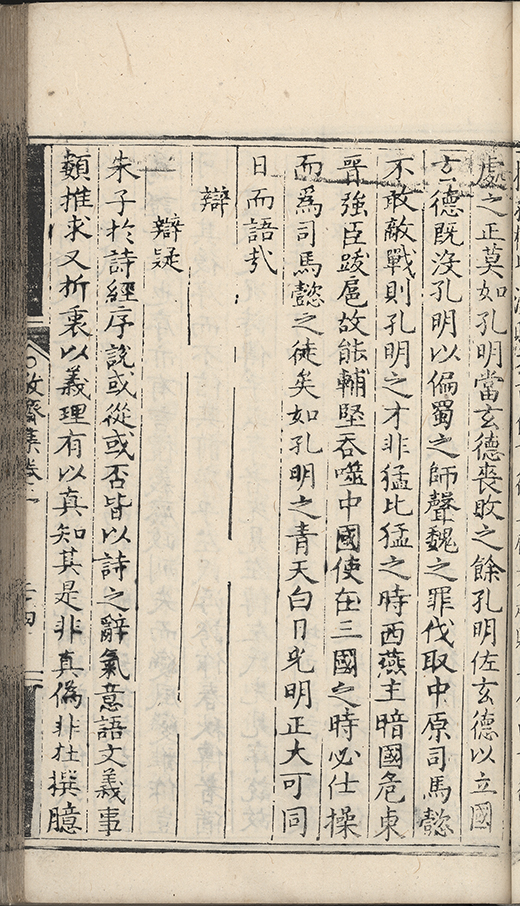 處之正莫如孔明當玄德喪敗之餘孔明佐玄德以立國
玄德既沒孔明以偏蜀之師聲魏之罪伐取中原司馬懿
不敢敵戰則孔明之才非猛比猛之時西燕主暗國危東
晉強臣跋扈故能輔堅吞噬中國使在三國之時必仕操
而爲司馬懿之徒矣如孔明之青天白日光明正大可同
日而語㢤
辯
辯疑
朱子於詩經序說或從或否皆以詩之辭氣意語文義事
類推求又折裏以義理有以真知其是非真僞非杜撰臆
敬齋集卷二
二十四